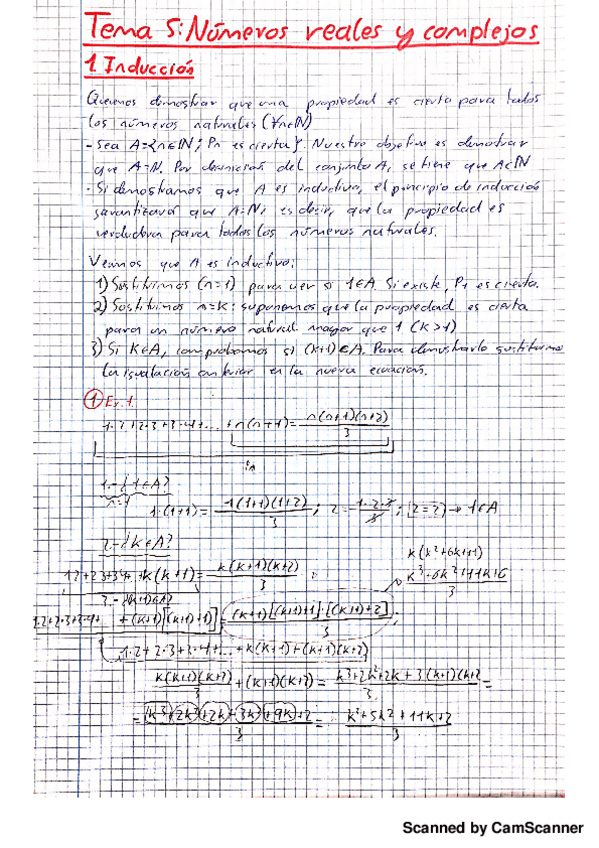 Tema 5: Números reales y complejos
1. Inducción
Queremos demostrar que una propiedad es cierta para todos
los números naturales (∀n∈ℕ)
- Sea A={n∈ℕ; Pn es cierta}. Nuestro objetivo es demostrar
que A=ℕ. Por definición del conjunto A, se tiene que A⊂ℕ
- Si demostramos que A es inductivo, el principio de inducción
garantizará que A=ℕ, es decir, que la propiedad es
verdadera para todos los números naturales.
Veamos que A es inductivo:
1) Sustituimos (n=1) para ver si 1∈A. Si existe, P1 es cierto.
2) Sustituimos n=k: suponemos que la propiedad es cierta
para un número natural mayor que 1 (k>1)
3) Si k∈A, comprobamos si (k+1)∈A. Para demostrarlo sustituimos
la igualación anterior en la nueva ecuación.
① Ex. 1
1·2+2·3+3·4+... +n(n+1)= n(n+1)(n+2)/3
1.- ¿1∈A?
n=1
1·(1+1)= 1(1+1)(1+2)/3 ; 2= 1·2·3/3 ; 2=2 → 1∈A
2.- ¿k∈A?
1·2+2·3+3·4+ +k(k+1)= k(k+1)(k+2)/3
k³+6k²+11k+6/3
3.- ¿(k+1)∈A?
1·2+2·3+3·4+ +(k+1)[(k+1)+1]= (k+1)[(k+1)+1]·[(k+1)+2]/3 ;
1·2+2·3+3·4+...+k(k+1)+(k+1)(k+2)
k(k+1)(k+2)/3 +(k+1)(k+2) = k³+2k²+2k+3(k+1)(k+2)/3 =
= k³+2k²+2k+3k+9k+2/3 = k³+5k²+11k+2/3
Scanned by CamScanner